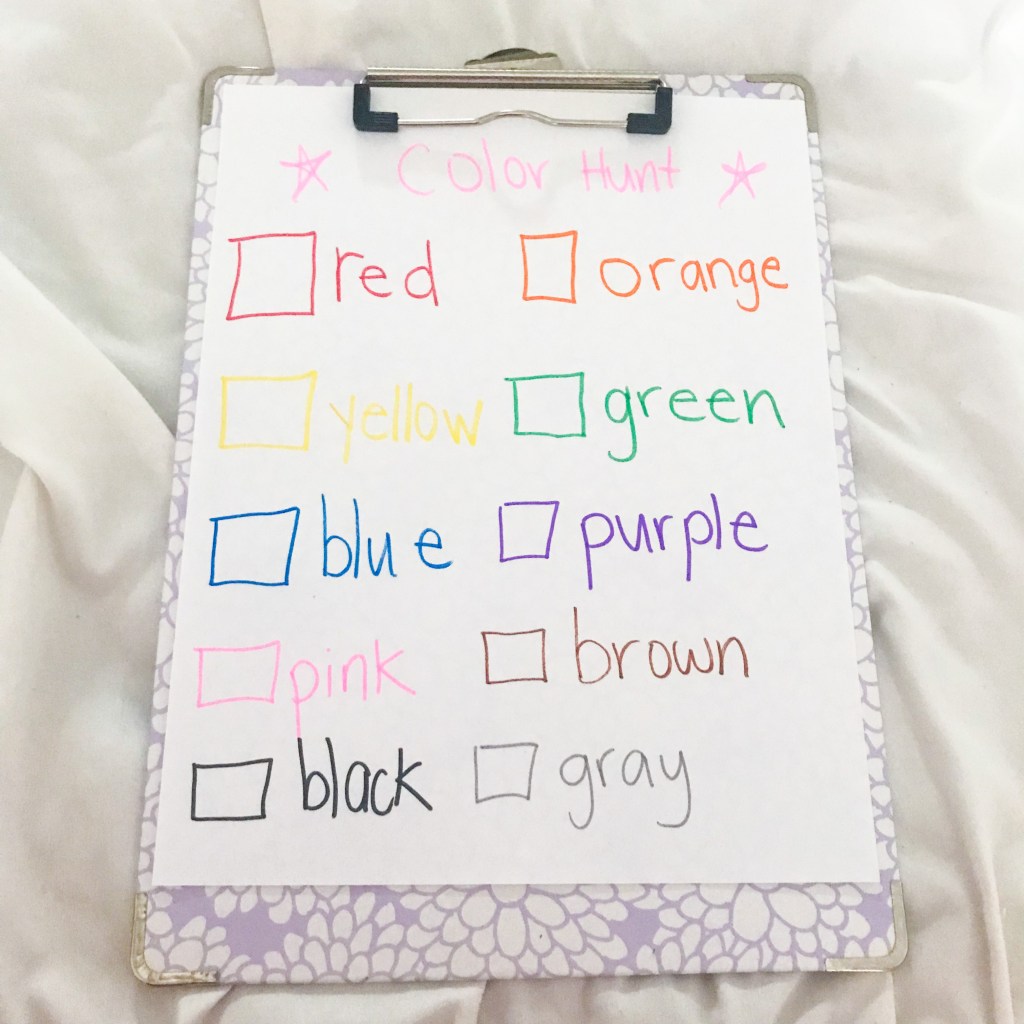 Color Hunt
red orange
yellow green
blue purple
pink brown
black gray